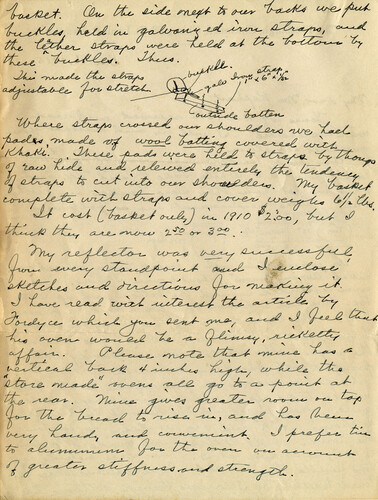 basket. On the side next to our backs we put
buckles, held in galvanized iron straps, and
the lether straps were held at the bottom by
these buckles. Thus.
This made the straps
adjustable for stretch
buckle.
galv Iron strap
1" x 6" x 1/32
outside batten
Where straps crossed our shoulders we had
pads made of wool batting covered with
Khaki. These pads were held to straps by thongs
of raw hide and relieved entirely the tendency
of straps to cut into our shoulders. My basket
complete with straps and cover weighs 6 1/2 lbs.
It cost (basket only) in 1910 $2.00, but I
think they are now 2.50 or 3.00.
My reflector was very successful
from every standpoint and I enclose
sketches and directions for making it.
I have read with interest the article by
Fordyce which you sent me, and I feel that
his oven would be a flimsy, ricketty
affair. Please note that mine has a
vertical back 4 inches high, while the
"store made" ovens all go to a point at
the rear. Mine gives greater room on top
for the bread to rise in, and has been
very handy, and convenient. I prefer tin
to aluminum for the oven on account
of greater stiffness and strength.